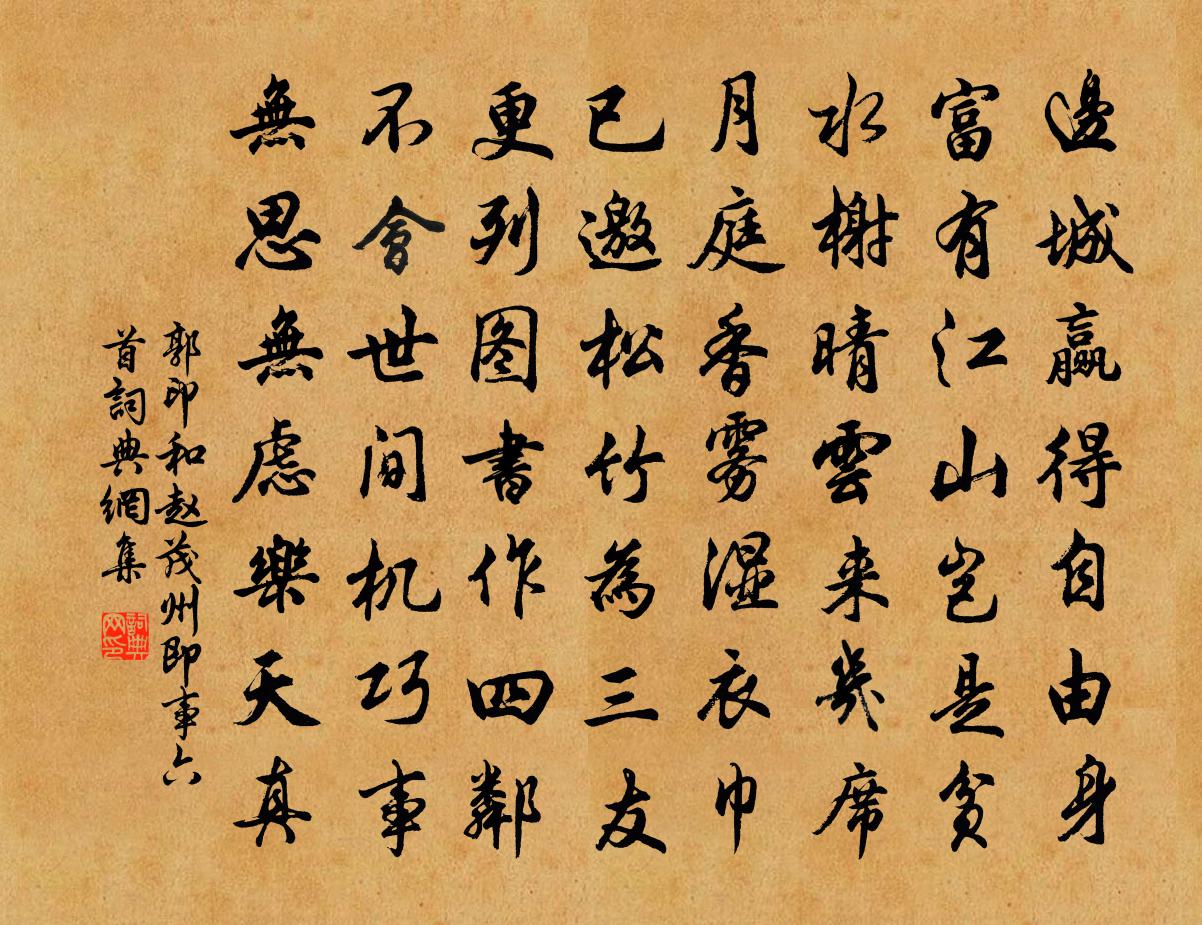 邊城贏得自由身
富有江山豈是貧
水榭晴雲来幾席
月庭香雾湿衣巾
已邀松竹為三友
更列图書作四鄰
不會世间机巧事
無思無虑樂天真
郭印和赵茂州即事六
首詞典網集
詞典网印